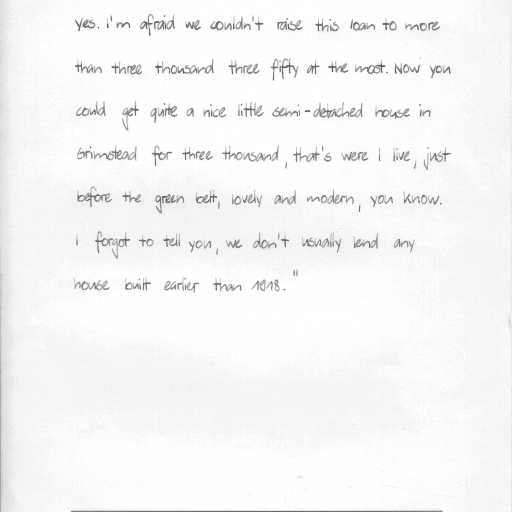 yes. i'm afraid we couldn't raise this loan to more
than three thousand three fifty at the most. Now you
could get quite a nice little semi-detached house in
Grimstead for three thousand, that's were I live, just
before the green belt, lovely and modern, you know.
I forgot to tell you, we don't usually lend any
house built earlier than 1918."